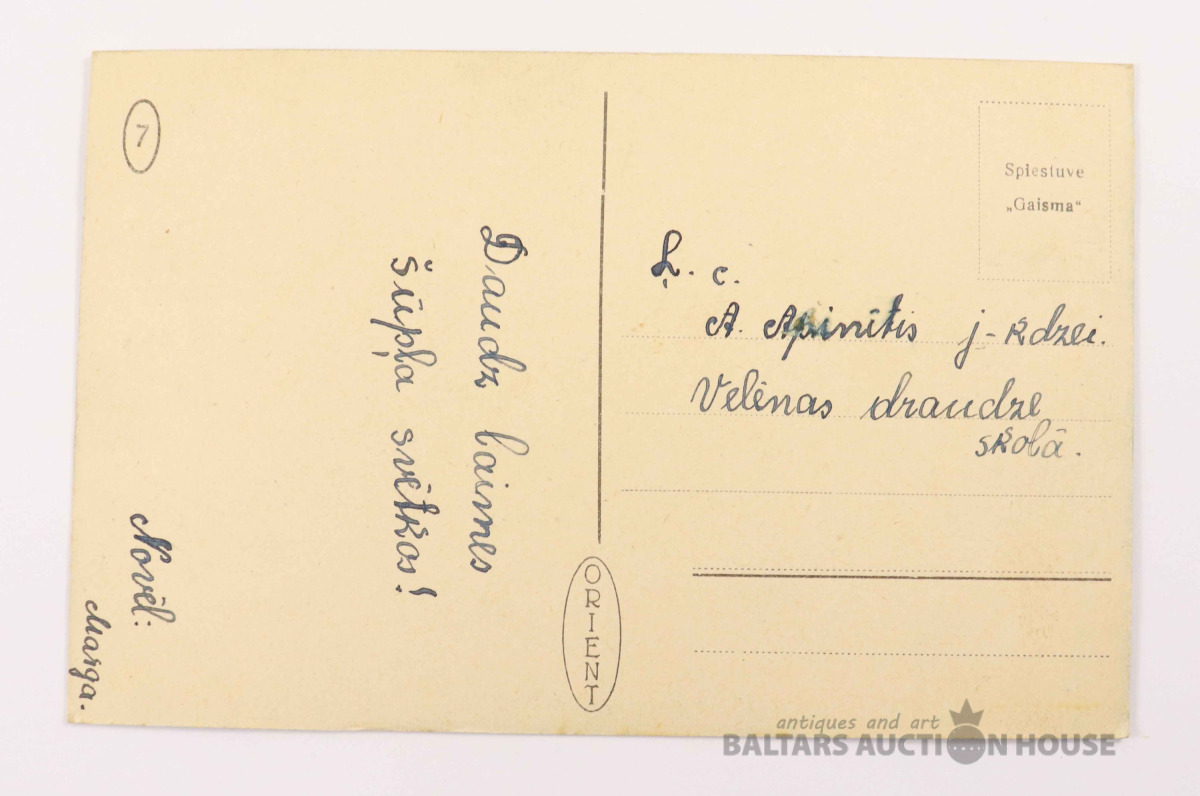 7
Daudz laimes
šūpļa svētkos!
Novēl:
Marga.
ORIENT
Spiestuve
„Gaisma“
Ļ. c.
A. Apinītis j-kdzei.
Velēnas draudze
skolā.
antiques and art
BALTARS AUCTION HOUSE